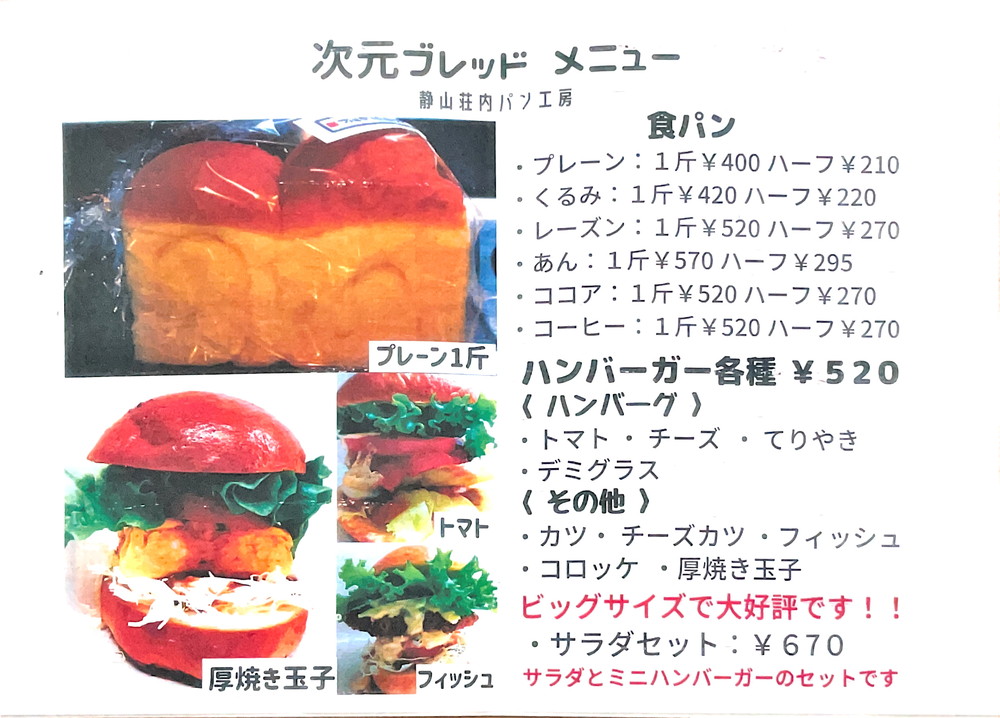 次元ブレッド メニュー
静山荘内パン工房
食パン
・プレーン：１斤￥400 ハーフ￥210
・くるみ：１斤￥420 ハーフ￥220
・レーズン：１斤￥520 ハーフ￥270
・あん：１斤￥570 ハーフ￥295
・ココア：１斤￥520 ハーフ￥270
・コーヒー：１斤￥520 ハーフ￥270
プレーン1斤
ハンバーガー各種 ￥５２０
〈 ハンバーグ 〉
・トマト ・ チーズ ・ てりやき
・デミグラス
〈 その他 〉
・カツ・ チーズカツ ・フィッシュ
・コロッケ ・厚焼き玉子
ビッグサイズで大好評です！！
・サラダセット：￥６７０
サラダとミニハンバーガーのセットです
トマト
厚焼き玉子
フィッシュ